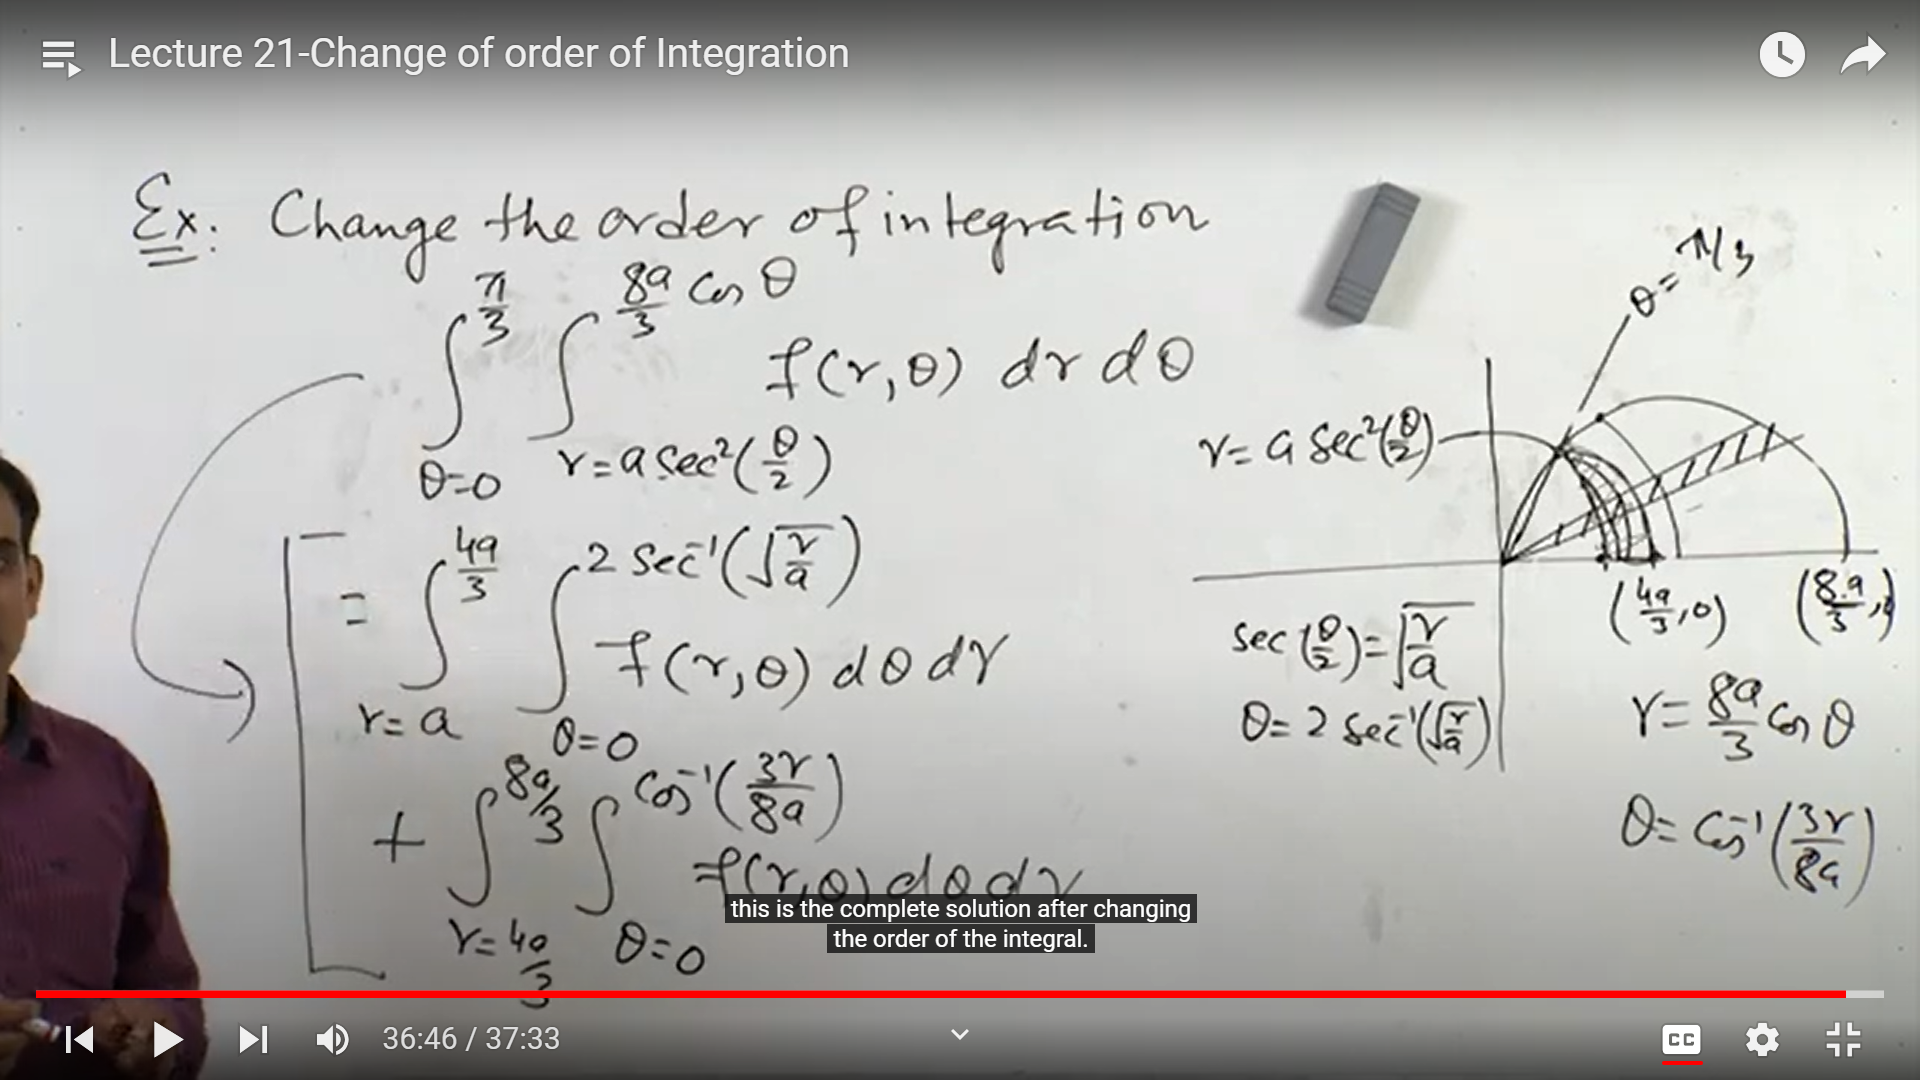 Lecture 21-Change of order of Integration
Ex: Change the order of integration
π/3 8a/3 cos θ
∫ ∫ f(r,θ) dr dθ
θ=0 r=a sec²(θ/2)
4a/3 2 sec⁻¹(√(r/a))
= ∫ ∫ f(r,θ) dθ dr
r=a θ=0
8a/3 cos⁻¹(3r/8a)
+ ∫ ∫ f(r,θ) dθ dr
r=4a/3 θ=0
θ=π/3
r=a sec²(θ/2)
(4a/3,0) (8a/3,
sec(θ/2)=√(r/a)
θ=2 sec⁻¹(√(r/a))
r=8a/3 cos θ
θ=cos⁻¹(3r/8a)
this is the complete solution after changing
the order of the integral.
36:46 / 37:33
CC